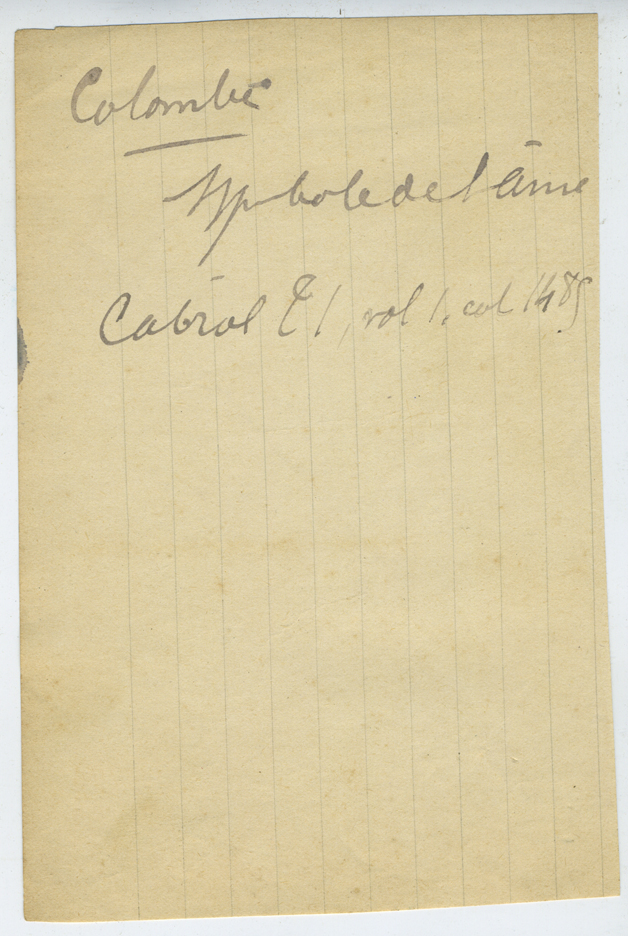 Colombe
symbole de l'âme
Cabrol T I, vol 1. col 1485